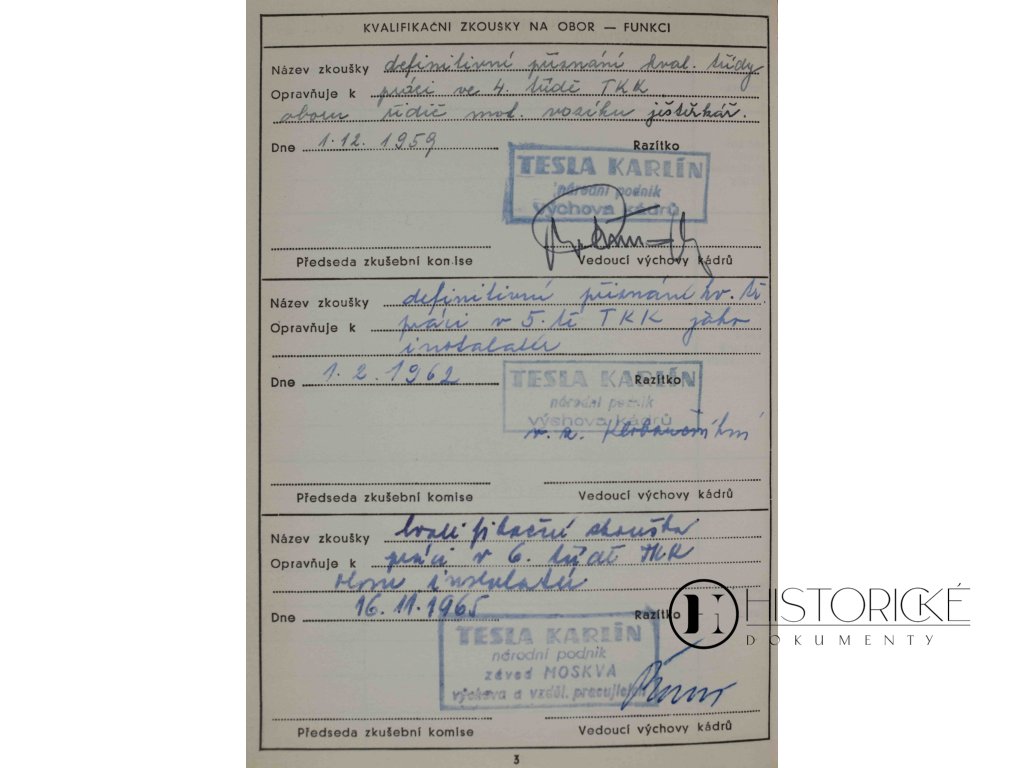 KVALIFIKAČNÍ ZKOUŠKY NA OBOR — FUNKCI
Název zkoušky definitivní přiznání kval. třídy
Opravňuje k práci ve 4. třídě TKK
oboru řidič mot. vozíku ještěrkář.
Dne 1. 12. 1959 Razítko
TESLA KARLÍN
národní podnik
výchova kádrů
Předseda zkušební komise Vedoucí výchovy kádrů
Název zkoušky definitivní přiznání kv. tř.
Opravňuje k práci v 5. tř TKK jako
instalatér
Dne 1. 2. 1962 Razítko
TESLA KARLÍN
národní podnik
výchova kádrů
v. z.
Předseda zkušební komise Vedoucí výchovy kádrů
Název zkoušky kvalifikační zkouška
Opravňuje k práci v 6. třídě TKK
oboru instalatér
Dne 16. 11. 1965 Razítko
TESLA KARLÍN
národní podnik
závod MOSKVA
výchova a vzděl. pracujících
Předseda zkušební komise Vedoucí výchovy kádrů
3
HISTORICKÉ
DOKUMENTY